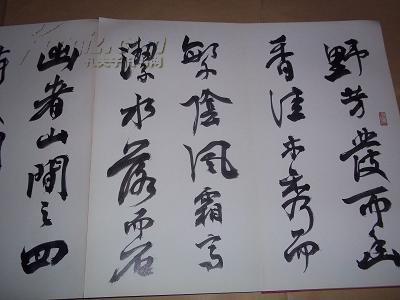 野芳發而幽
香佳木秀而
繁陰風霜高
潔水落而石
出者山間之四